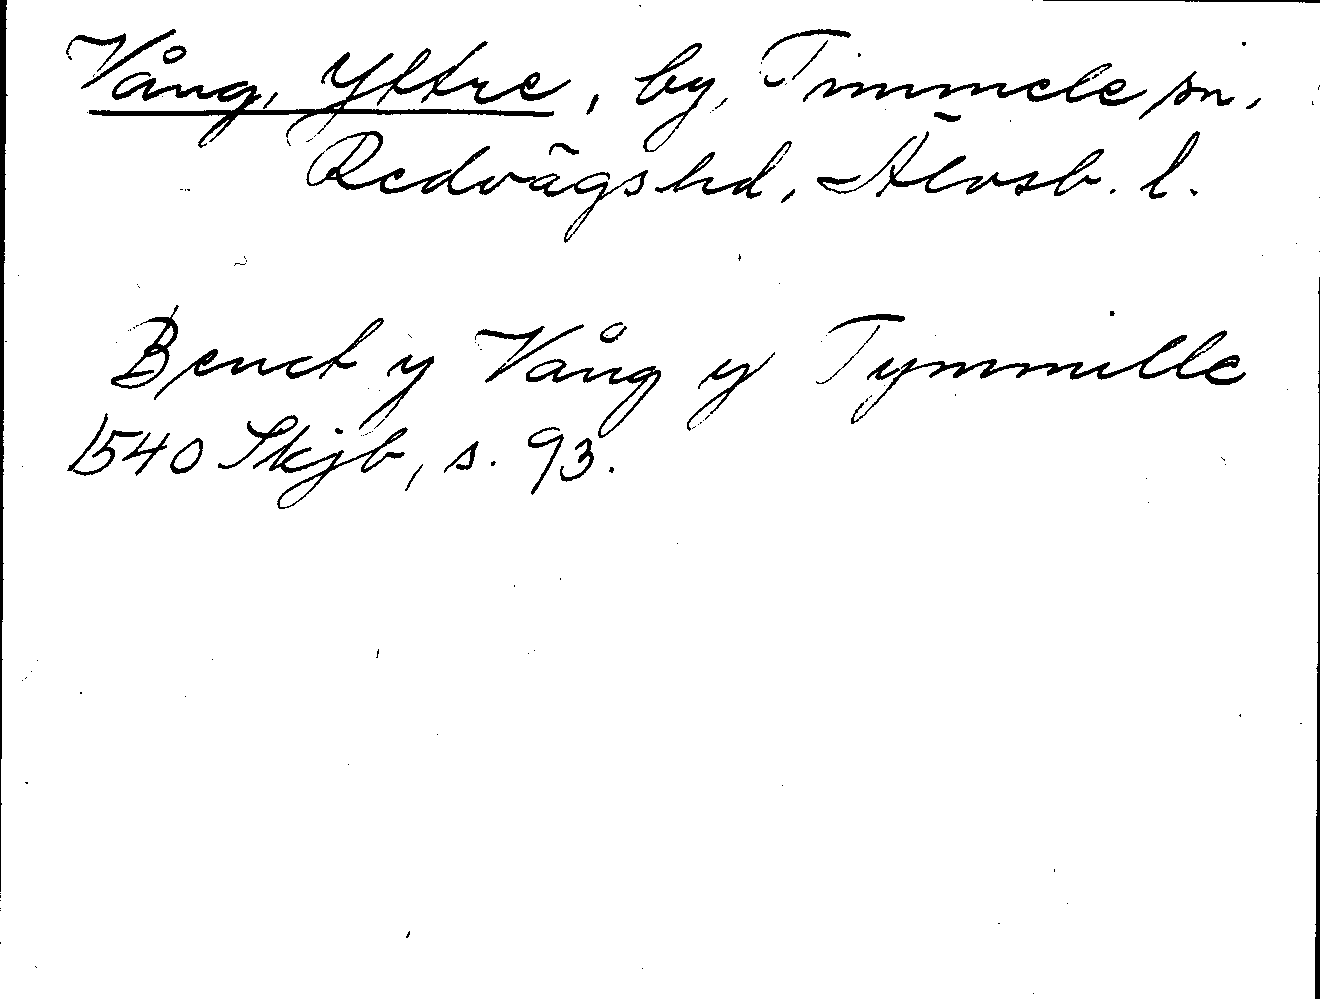 Vång, Yttre, by, Timmele sn,
Redvägs hd, Älvsb. l.
Benct y Vång y Tymmille
1540 Skjb, s. 93.